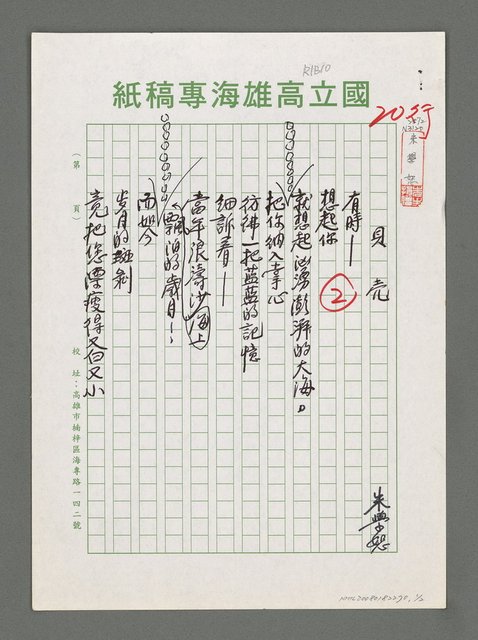 R1B10
國立高雄海專稿紙
20行
朱學恕
貝壳
朱學恕
有時—
想起你
②
就想起汹湧澎湃的大海。
把你納入掌心
彷彿一把藍藍的記憶
細訴着—
當年浪濤沙海上
飄泊的歲月—；
而如今
歲月的斑剥
竟把您漂瘦得又白又小
（第 頁）
校址：高雄市楠梓區海專路一四二號